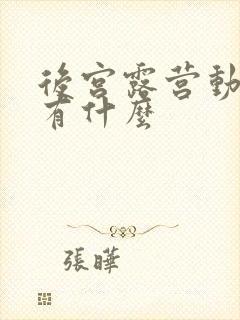 後宮露营動
有什麼
張曄